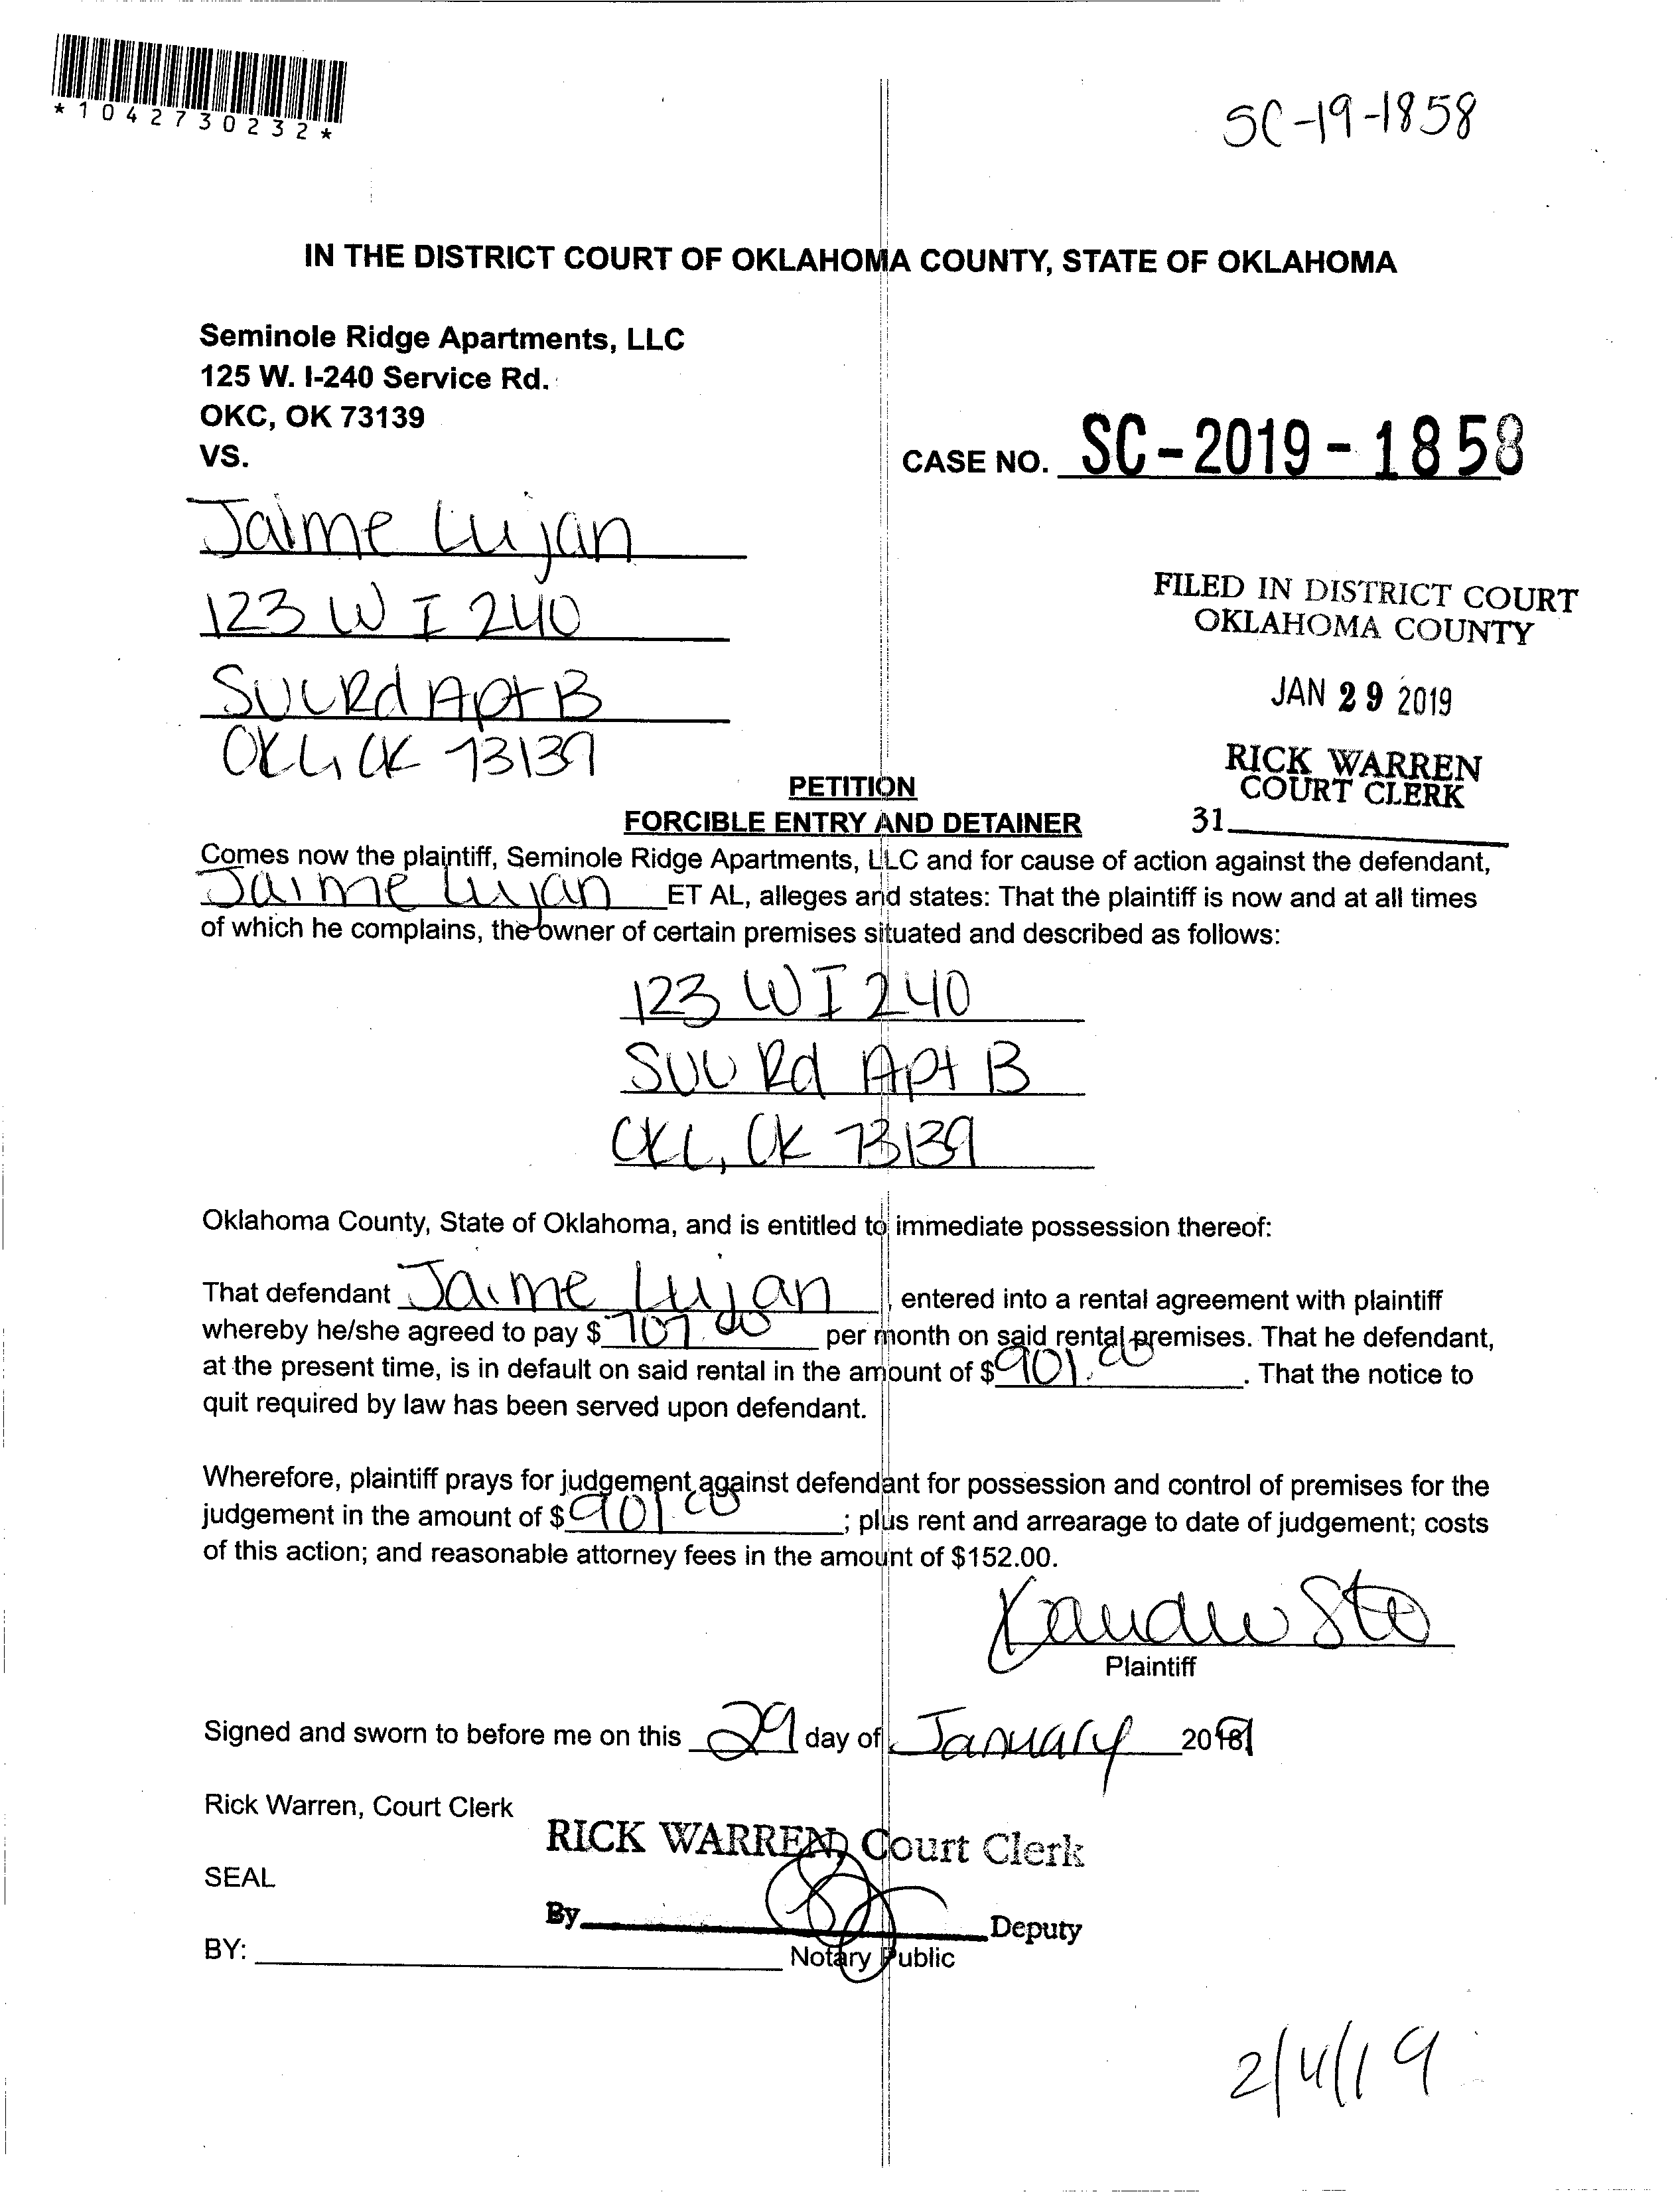 *1042730232*
SC-19-1858
IN THE DISTRICT COURT OF OKLAHOMA COUNTY, STATE OF OKLAHOMA
Seminole Ridge Apartments, LLC
125 W. I-240 Service Rd.
OKC, OK 73139
VS.
CASE NO. SC-2019-1858
Jaime Lujan
123 W I 240
SVC Rd Apt B
OKC, OK 73139
FILED IN DISTRICT COURT
OKLAHOMA COUNTY
JAN 29 2019
RICK WARREN
COURT CLERK
31
PETITION
FORCIBLE ENTRY AND DETAINER
Comes now the plaintiff, Seminole Ridge Apartments, LLC and for cause of action against the defendant,
Jaime Lujan ET AL, alleges and states: That the plaintiff is now and at all times
of which he complains, the owner of certain premises situated and described as follows:
123 W I 240
SVC Rd Apt B
OKC, OK 73139
Oklahoma County, State of Oklahoma, and is entitled to immediate possession thereof:
That defendant Jaime Lujan, entered into a rental agreement with plaintiff
whereby he/she agreed to pay $ 707.00 per month on said rental premises. That he defendant,
at the present time, is in default on said rental in the amount of $ 901.00. That the notice to
quit required by law has been served upon defendant.
Wherefore, plaintiff prays for judgement against defendant for possession and control of premises for the
judgement in the amount of $ 901.00; plus rent and arrearage to date of judgement; costs
of this action; and reasonable attorney fees in the amount of $152.00.
Plaintiff
Signed and sworn to before me on this 29 day of January 2019
Rick Warren, Court Clerk
RICK WARREN, Court Clerk
SEAL
By Deputy
BY: Notary Public
2/4/19